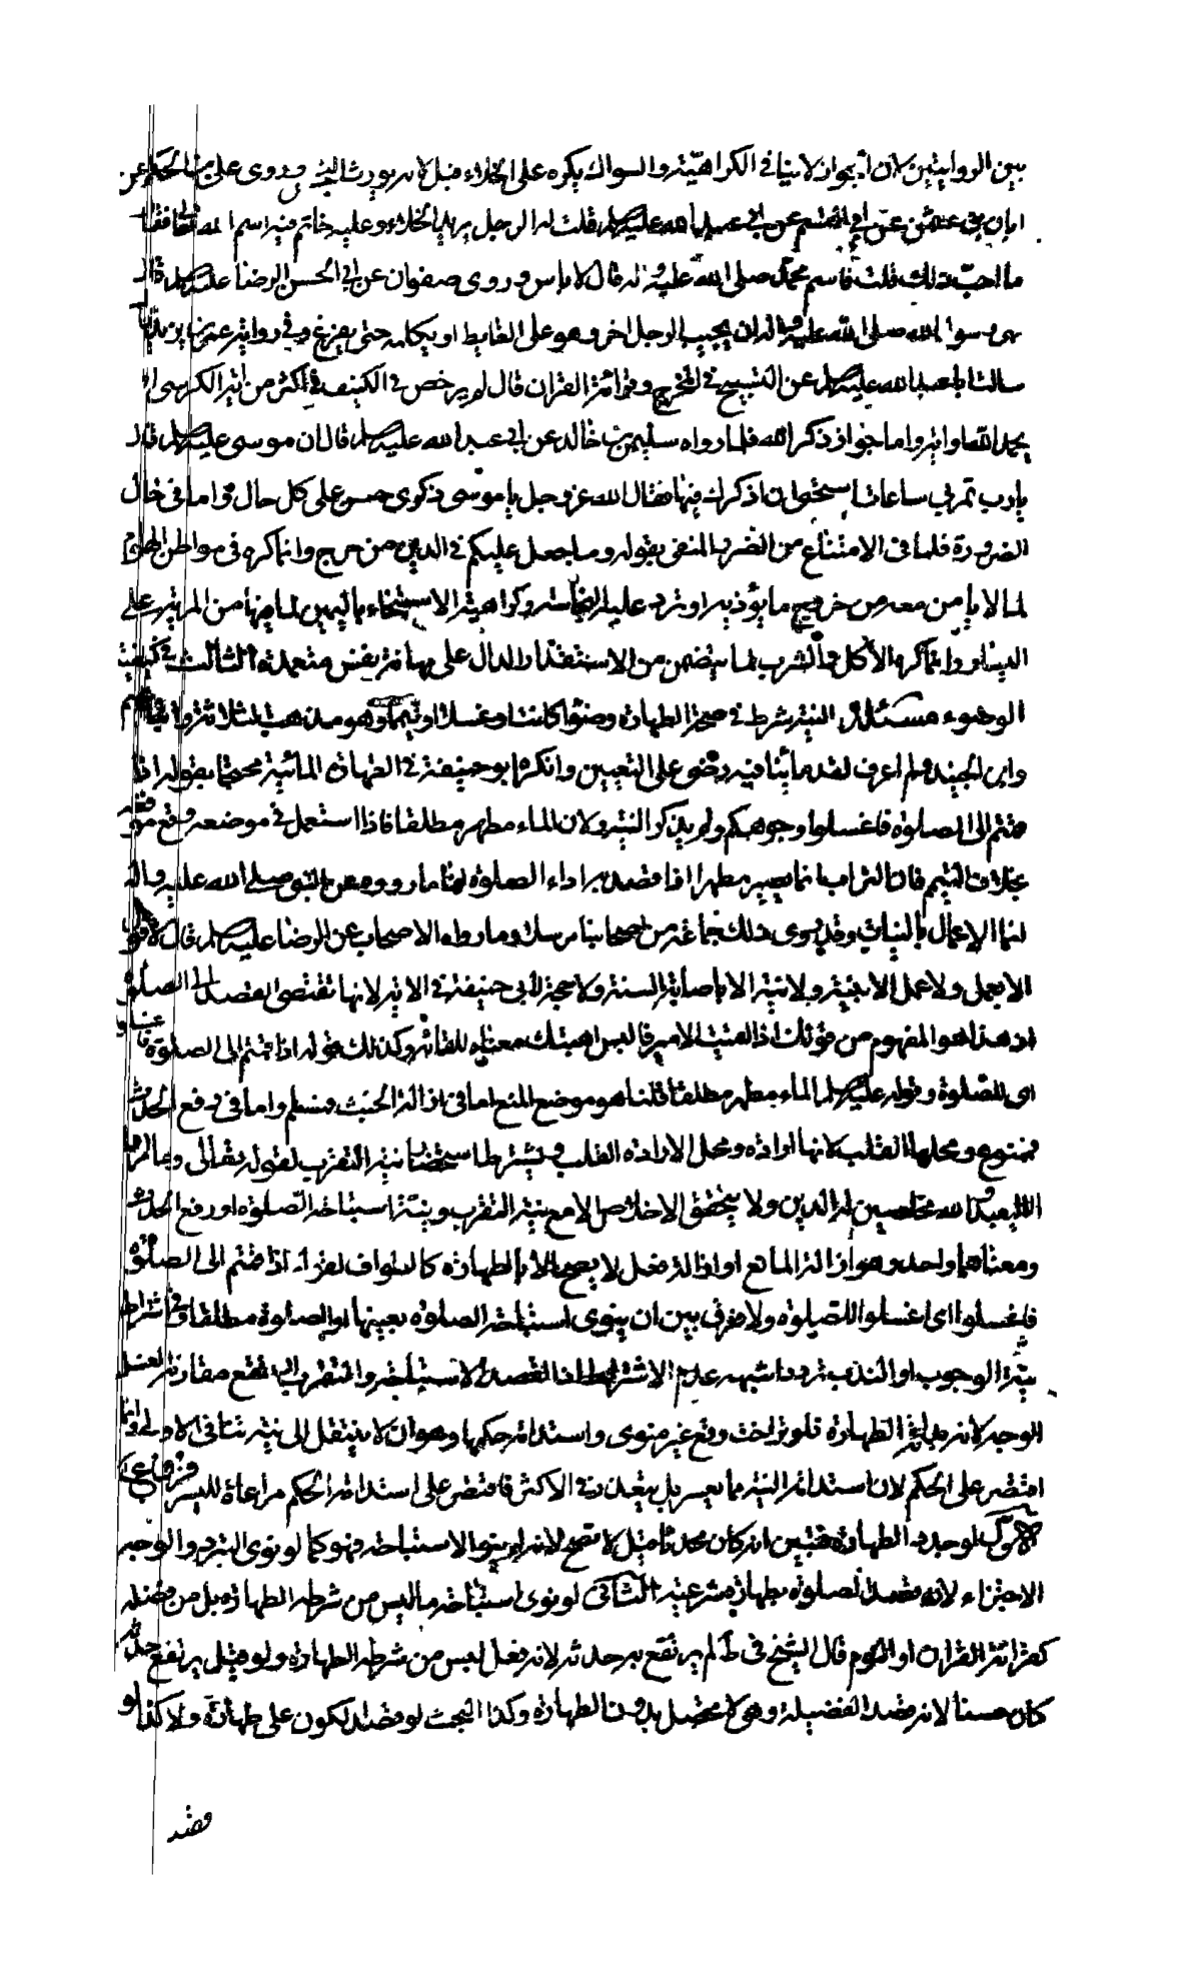 بين الروايتين لان الجواز لا ينافى الكراهية والسواك يكره على الخلاء قيل لانه يورث البخر وروى على بن الحكم عن
ابان بن عثمن عن ابى القسم عن ابى عبد الله عليه السلم قلت له الرجل يريد الخلاء وعليه خاتم فيه اسم الله تعالى فقال
ما احب ذلك قلت فاسم محمد صلى الله عليه واله قال لا باس وروى صفوان عن ابى الحسن الرضا عليه السلم قال
نهى رسول الله صلى الله عليه واله ان يجيب الرجل اخر وهو على الغايط او يكلمه حتى يفرغ وفى رواية عمر بن يزيد
سالت ابا عبد الله عليه السلم عن التسبيح فى المخرج وقرائة القران قال لم يرخص فى الكنيف فى اكثر من اية الكرسى او
يحمد الله او اية واما جواز ذكر الله فلما رواه سليمن بن خالد عن ابى عبد الله عليه السلم قال ان موسى عليه السلم قال
يا رب تمر بى ساعات استحيى ان اذكرك فيها فقال الله عز وجل يا موسى ذكرى حسن على كل حال واما فى حال
الضرورة فلما فى الامتناع من الضرر المنفى بقوله وما جعل عليكم فى الدين من حرج وانما كره فى مواطن الهوام
لما لا يا من معه من خروج ما يؤذيه او ترد عليه النجاسة وكراهية الاستنجاء باليمين لما فيها من المزية على
اليسار وانما كره الاكل والشرب لما يتضمن من الاستقذار الدال على مهانة نفس متعمده الثالث فى كيفية
الوضوء مسئلة النية شرط فى صحة الطهارة وضوءا كانت او غسلا او تيمما وهو مذهب الثلاثة واتباعهم
وابن الجنيد ولم اعرف لقدمائنا فيه نصا على التعيين وانكره ابو حنيفة فى الطهارة المائية محتجا بقوله اذا
قمتم الى الصلوة فاغسلوا وجوهكم ولم يذكر النية ولان الماء مطهر مطلقا فاذا استعمل فى موضعه وقع موقعه
بخلاف التيمم فان التراب انما يصير مطهرا اذا قصد به اداء الصلوة لنا ما رووه عن النبى صلى الله عليه واله
انما الاعمال بالنيات وقد روى ذلك جماعة من اصحابنا مرسلا وما رواه الاصحاب عن الرضا عليه السلم قال لا قول
الا بعمل ولا عمل الا بنية ولا نية الا باصابة السنة ولا حجة لابى حنيفة فى الاية لانها تقتضى القصد الى الصلوة
اذ هذا هو المفهوم من قولك اذا لقيت الامير فالبس اهبتك معناه للقائه وكذلك قوله اذا قمتم الى الصلوة فاغسلوا
اى للصلوة وقوله عليه السلم الماء مطهر مطلقا قلنا هو موضع المنع اما فى ازالة الخبث فمسلم واما فى رفع الحدث
فممنوع ومحلها القلب لانها ارادة ومحل الارادة القلب ويشترط استحضار نية التقرب لقوله تعالى وما امروا
الا ليعبدوا الله مخلصين له الدين ولا يتحقق الاخلاص الا مع نية التقرب ونية استباحة الصلوة او رفع الحدث
ومعناهما واحد وهو ازالة المانع او ازالة فعل لا يصح الا بالطهارة كالطواف لقوله اذا قمتم الى الصلوة
فاغسلوا اى اغسلوا للصلوة ولا فرق بين ان ينوى استباحة الصلوة بعينها او الصلوة مطلقا وفى اشتراط
نية الوجوب او الندب تردد اشبهه عدم الاشتراط اذا القصد الاستباحة والتقرب تقع مقارنة لغسل
الوجه لانه بداية الطهارة فلو تراخت وقع غير منوى واستدامة حكمها وهو ان لا ينتقل الى نية تنافى الاولى وانما
اقتصر على الحكم لان استدامة النية مما يعسر بل يتعذر فى الاكثر فاقتصر على استدامة الحكم مراعاة لليسر فروع ى
الاول لو جدد الطهارة فتبين انه كان محدثا قيل لا تصح لانه لم ينو الاستباحة فهو كما لو نوى التبرد والوجه
الاجتزاء لانه قصد الصلوة بطهارة شرعية الثانى لو نوى استباحة ما ليس من شرطه الطهارة بل من فضله
كقرائة القران او النوم قال الشيخ فى ط لم يرتفع به حدثه لانه فعل ليس من شرطه الطهارة ولو قيل يرتفع حدثه
كان حسنا لانه قصد الفضيلة وهى لا تحصل بدون الطهارة وكذا البحث لو قصد الكون على طهارة ولا كذا لو
قصد